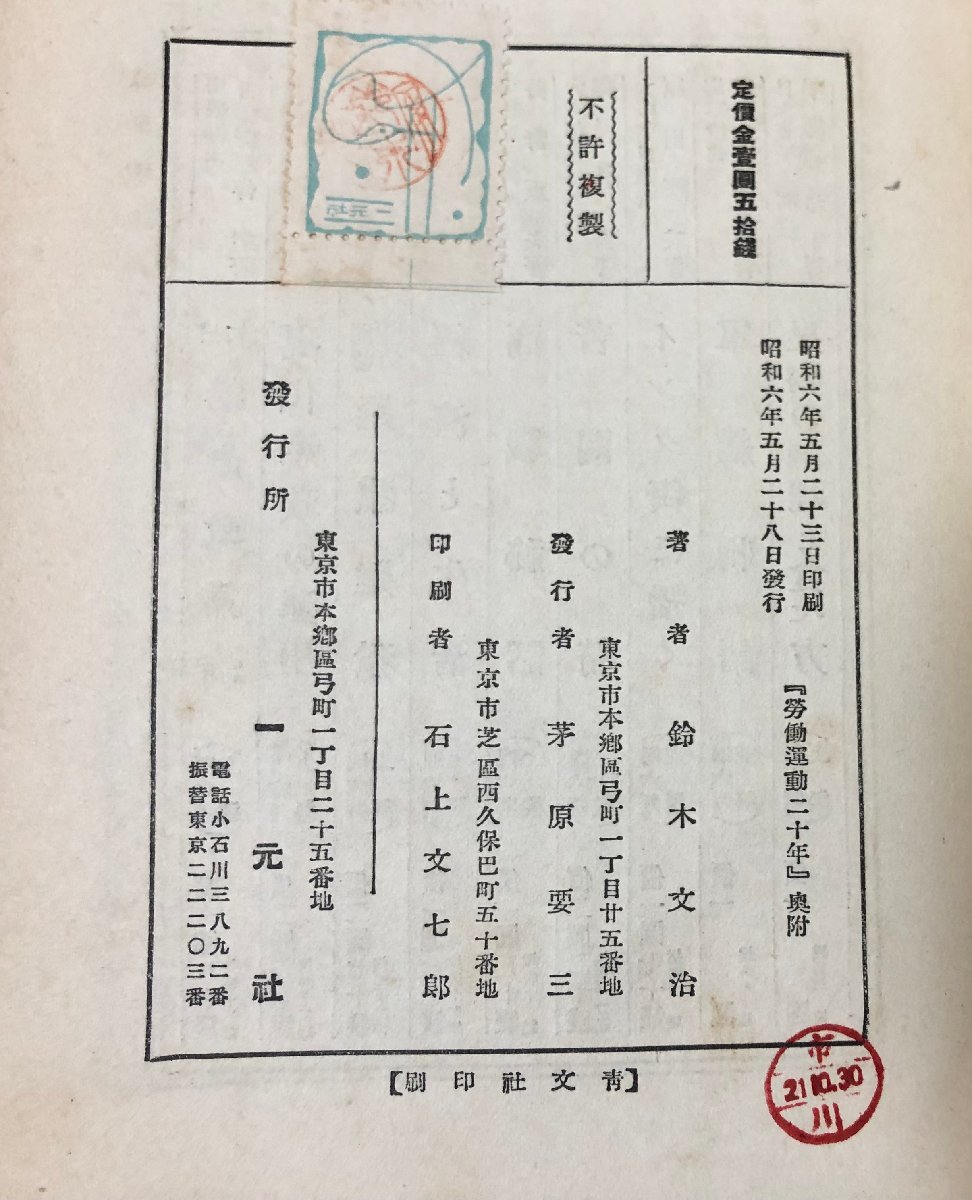 定價金壹圓五拾錢
不許複製
一元社
昭和六年五月二十三日印刷
昭和六年五月二十八日發行
『勞働運動二十年』奧附
著者 鈴木文治
東京市本鄕區弓町一丁目廿五番地
發行者 茅原要三
東京市芝區西久保巴町五十番地
印刷者 石上文七郞
東京市本鄕區弓町一丁目二十五番地
發行所 一元社
電話小石川三八九二番
振替東京二二二〇三番
【靑文社印刷】
市
21.10.30
川